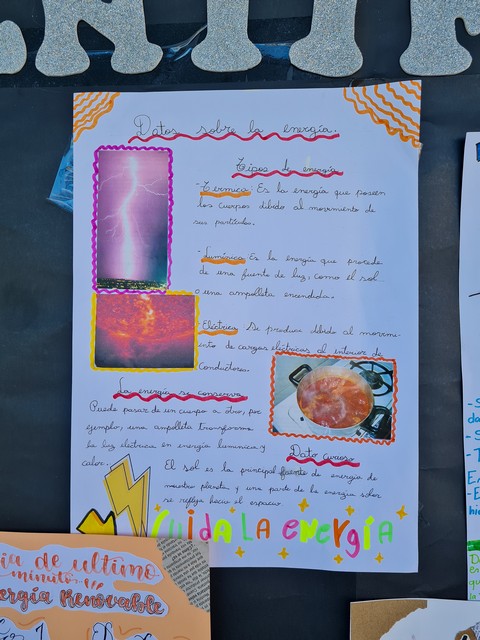 Datos sobre la energía.
Tipos de energía
-Térmica: Es la energía que poseen
los cuerpos dibido al movimiento de
sus partículas.
-Lumínica: Es la energía que procede
de una fuente de luz, como el sol
o una ampolleta encendida.
-Eléctrica: Se produce dibido al movimie-
nto de cargas eléctricas al interior de
Conductores.
La energía se conserva
Puede pasar de un cuerpo a otro, por
ejemplo, una ampolleta transforma
la luz eléctrica en energía lumínica y
calor.
Dato curioso
El sol es la principal fuente de energía de
nuestro planeta y una parte de la energía solar
se refleja hacia el espacio
Cuida LA ENERGÍA
ía de ultimo
minuto
ergía Renovable